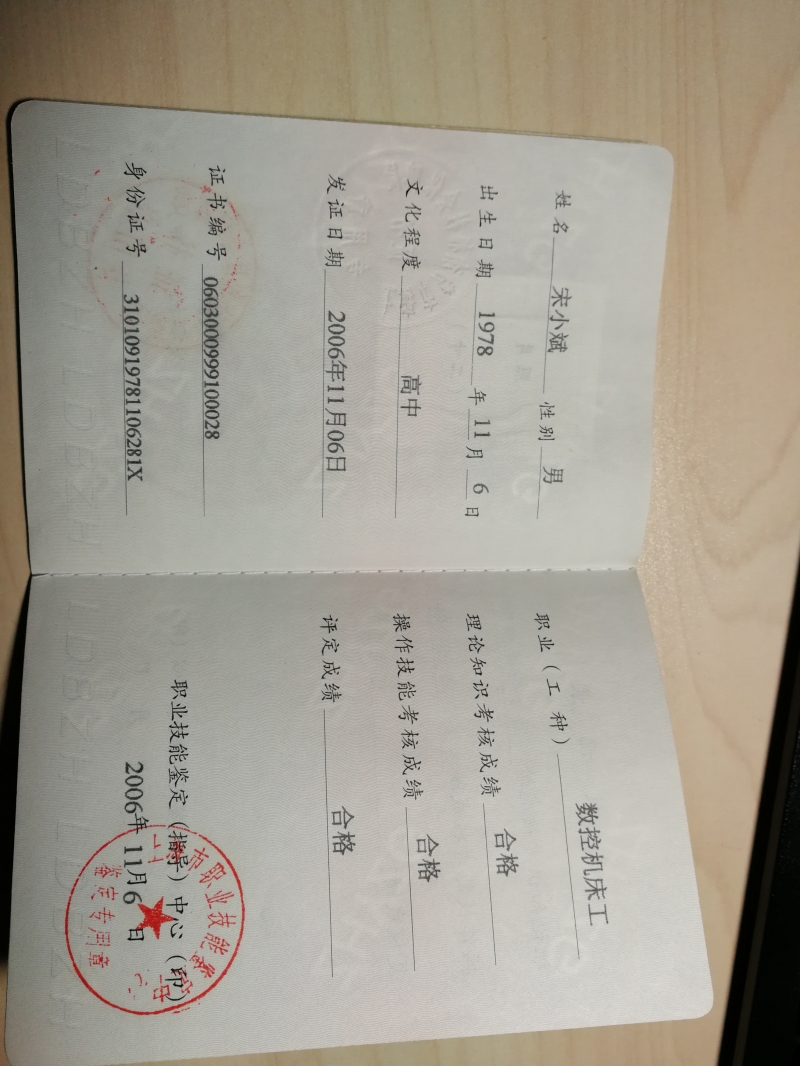 姓名 宋小斌 性别 男
出生日期 1978 年 11 月 6 日
文化程度 高中
发证日期 2006年11月06日
证书编号 0603000999100028
身份证号 31010919781106281X
职业（工 种） 数控机床工
理论知识考核成绩 合格
操作技能考核成绩 合格
评定成绩 合格
职业技能鉴定（指导）中心（印）
2006年 11月6 日
市职业技能鉴
中心
鉴定专用章